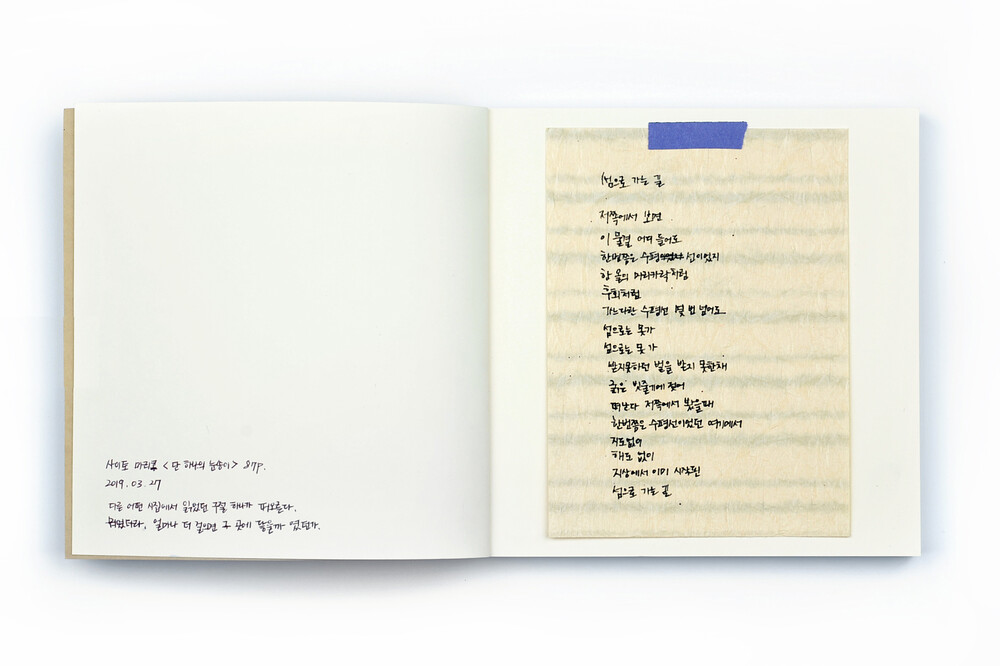 사이토 마리코 <단 하나의 눈송이> 87p.
2019.03.27
다른 어떤 시집에서 읽었던 구절 하나가 떠오른다.
뭐였더라, 얼마나 더 걸으면 그 곳에 닿을까 였던가.
섬으로 가는 길
저쪽에서 보면
이 물결 어저 들어도
한번쯤은 수평 선이었지
한 올의 머리카락처럼
후회처럼
가느다란 수평선 몇 번 넘어도
섬으로는 못가
섬으로는 못 가
받지못하던 벌을 받지 못한채
굵은 빗줄기에 젖어
떠난다 저쪽에서 봤을때
한번쯤은 수평선이었던 여기에서
지도없이
해도 없이
지상에서 이미 시작된
섬으로 가는 길